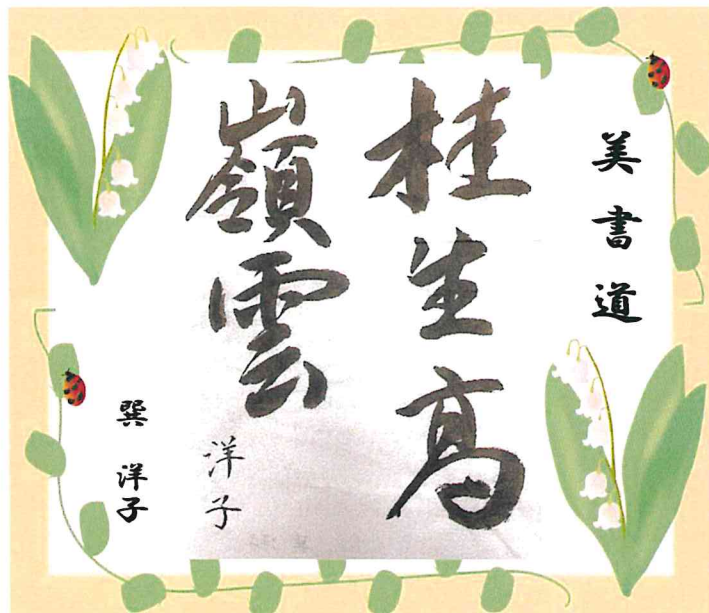 美書道
桂生高
嶺雲
洋子
巽 洋子